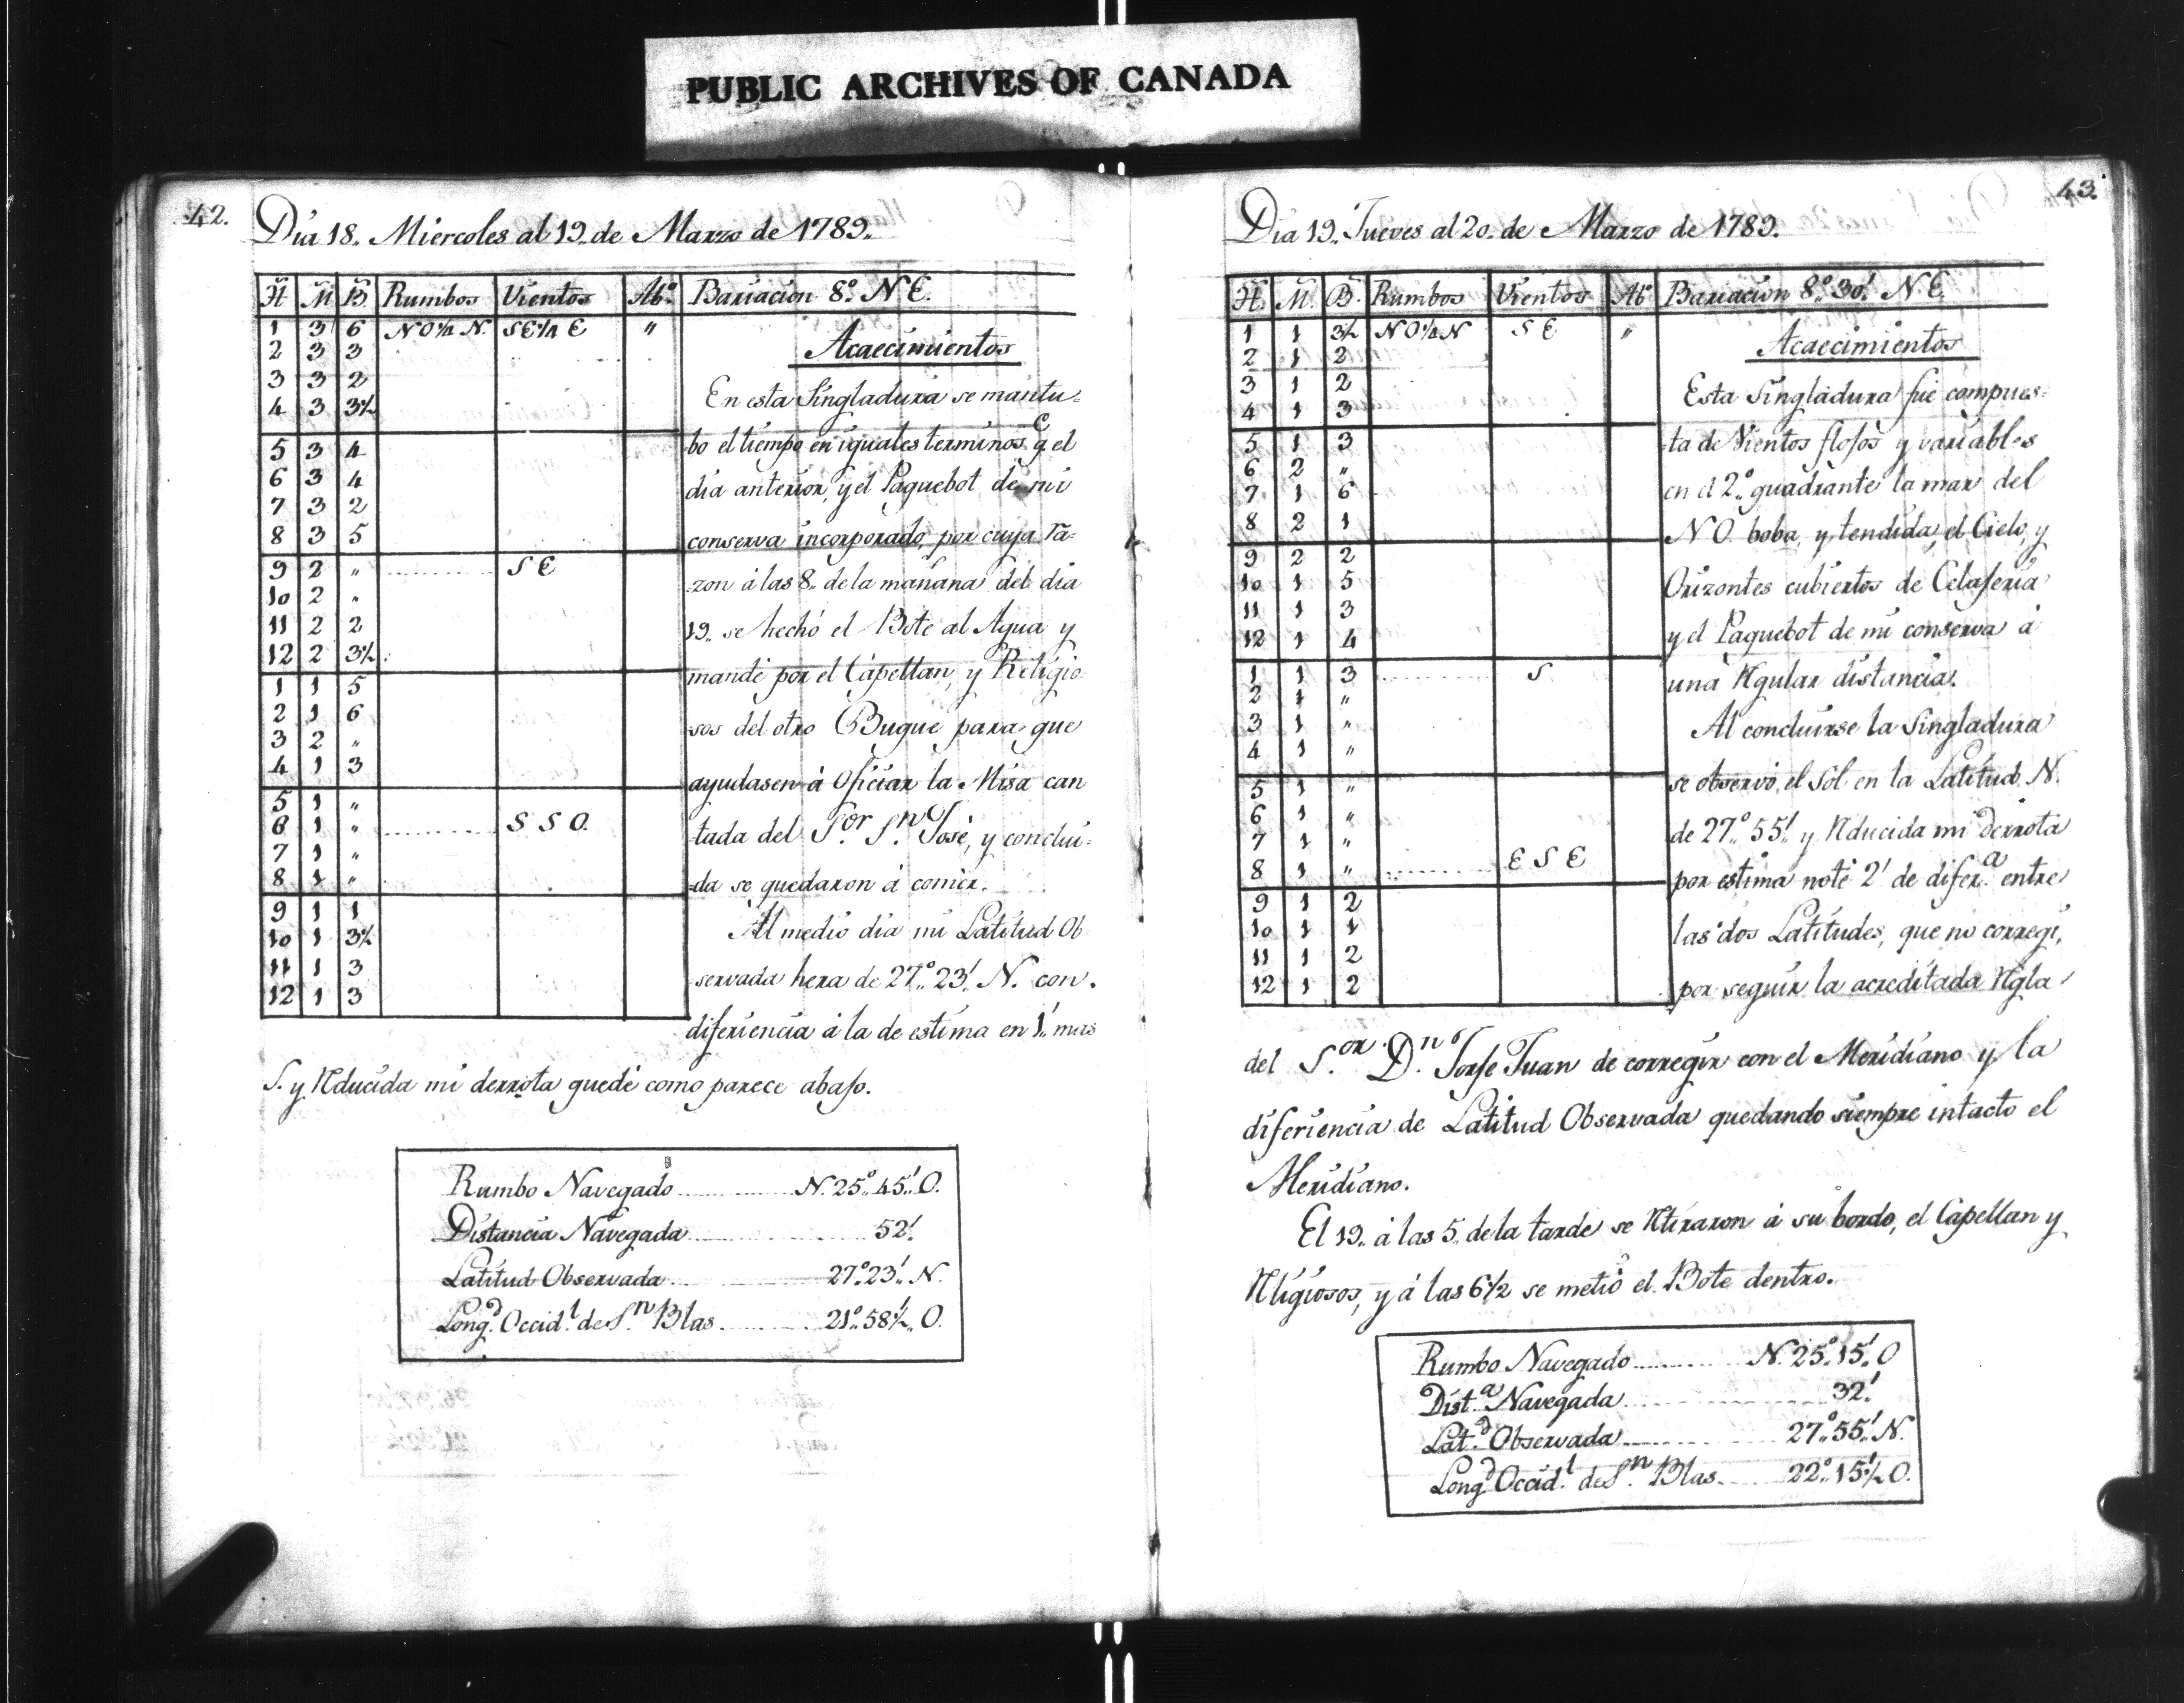 PUBLIC ARCHIVES OF CANADA
42.
Dia 18. Miercoles al 19. de Marzo de 1789.
H M B Rumbos Vientos Ab.º Bariacion 8.º N E.
1 3 6 NO¼N. SE¼E "
2 3 3
3 3 2
4 3 3½
5 3 4
6 3 4
7 3 2
8 3 5
9 2 " ............ S E
10 2 "
11 2 2
12 2 3½
1 1 5
2 1 6
3 2 "
4 1 3
5 1 "
6 1 " ............ S S O.
7 1 "
8 1 "
9 1 1
10 1 3½
11 1 3
12 1 3
Acaecimientos
En esta Singladura se mantu-
bo el tiempo en iguales terminos q.e el
dia anterior, y el Paquebot de mi
conserva incorporado, por cuya Ra-
zon á las 8. de la mañana del dia
19. se hechó el Bote al Agua y
mandé por el Capellan, y Religio
sos del otro Buque para que
ayudasen á Oficiar la Misa can
tada del S.or S.n José, y conclui-
da se quedaron á comer.
Al medio dia mi Latitud Ob
servada hera de 27.º 23.' N. con
diferiencia á la de estima en 1.' mas
S. y Rducida mi derrota quedé como parece abajo.
Rumbo Navegado ............ N. 25.º 45.' O.
Distancia Navegada ............ 52.'
Latitud Observada ............ 27.º 23.' N.
Long.d Occid.l de S.n Blas ............ 21.º 58½.' O.
43.
Dia 19. Jueves al 20. de Marzo de 1789.
H. M. B. Rumbos Vientos Abº Bariacion 8.º 30.' N E.
1 1 3½ NO¼N S E "
2 1 2
3 1 2
4 1 3
5 1 3
6 2 "
7 1 6
8 2 1
9 2 2
10 1 5
11 1 3
12 1 4
1 1 3 ............ S
2 1 "
3 1 "
4 1 "
5 1 "
6 1 "
7 1 "
8 1 " ............ E S E
9 1 2
10 1 1
11 1 2
12 1 2
Acaecimientos
Esta Singladura fué compues-
ta de Vientos flojos y variables
en el 2.º quadrante la mar del
NO. boba, y tendida, el Cielo, y
Orizontes cubiertos de Celajeria
y el Paquebot de mi conserva á
una Rgular distancia.
Al concluirse la Singladura
se observó el Sol en la Latitud N.
de 27.º 55.' y Rducida mi derrota
por estima noté 2' de difer.a entre
las dos Latitudes, que no corregi,
por seguir la acreditada Rgla
del S.or D.n Jorje Juan de corregir con el Meridiano y la
diferiencia de Latitud Observada quedando siempre intacto el
Meridiano.
El 19. á las 5. de la tarde se Rtiraron á su bordo, el Capellan y
Rligiosos, y á las 6½ se metió el Bote dentro.
Rumbo Navegado ............ N. 25.º 15.' O
Dist.a Navegada ............ 32.'
Lat.d Observada ............ 27.º 55.' N.
Long.d Occid.l de S.n Blas ............ 22.º 15½' O.